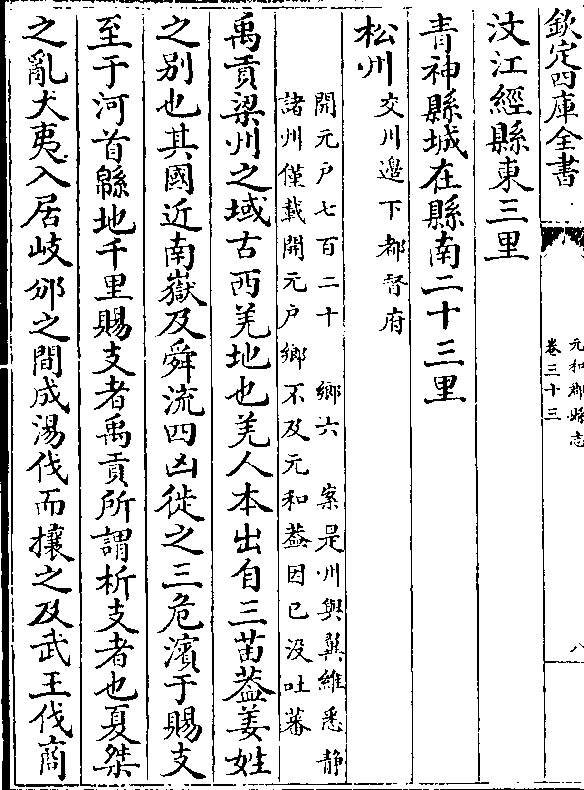 欽定四庫全書
元和郡縣志
卷三十三
八
汶江經縣東三里
青神縣城在縣南二十三里
松州交川邊下都督府
開元戶七百二十 鄉六 案是州與翼維悉靜
諸州僅載開元戶鄉不及元和葢因已没吐蕃
禹貢梁州之域古西羌地也羌人本出自三苗葢姜姓
之别也其國近南嶽及舜流四凶徙之三危濱于賜支
至于河首緜地千里賜支者禹貢所謂析支者也夏桀
之亂犬夷入居岐邠之間成湯伐而攘之及武王伐商